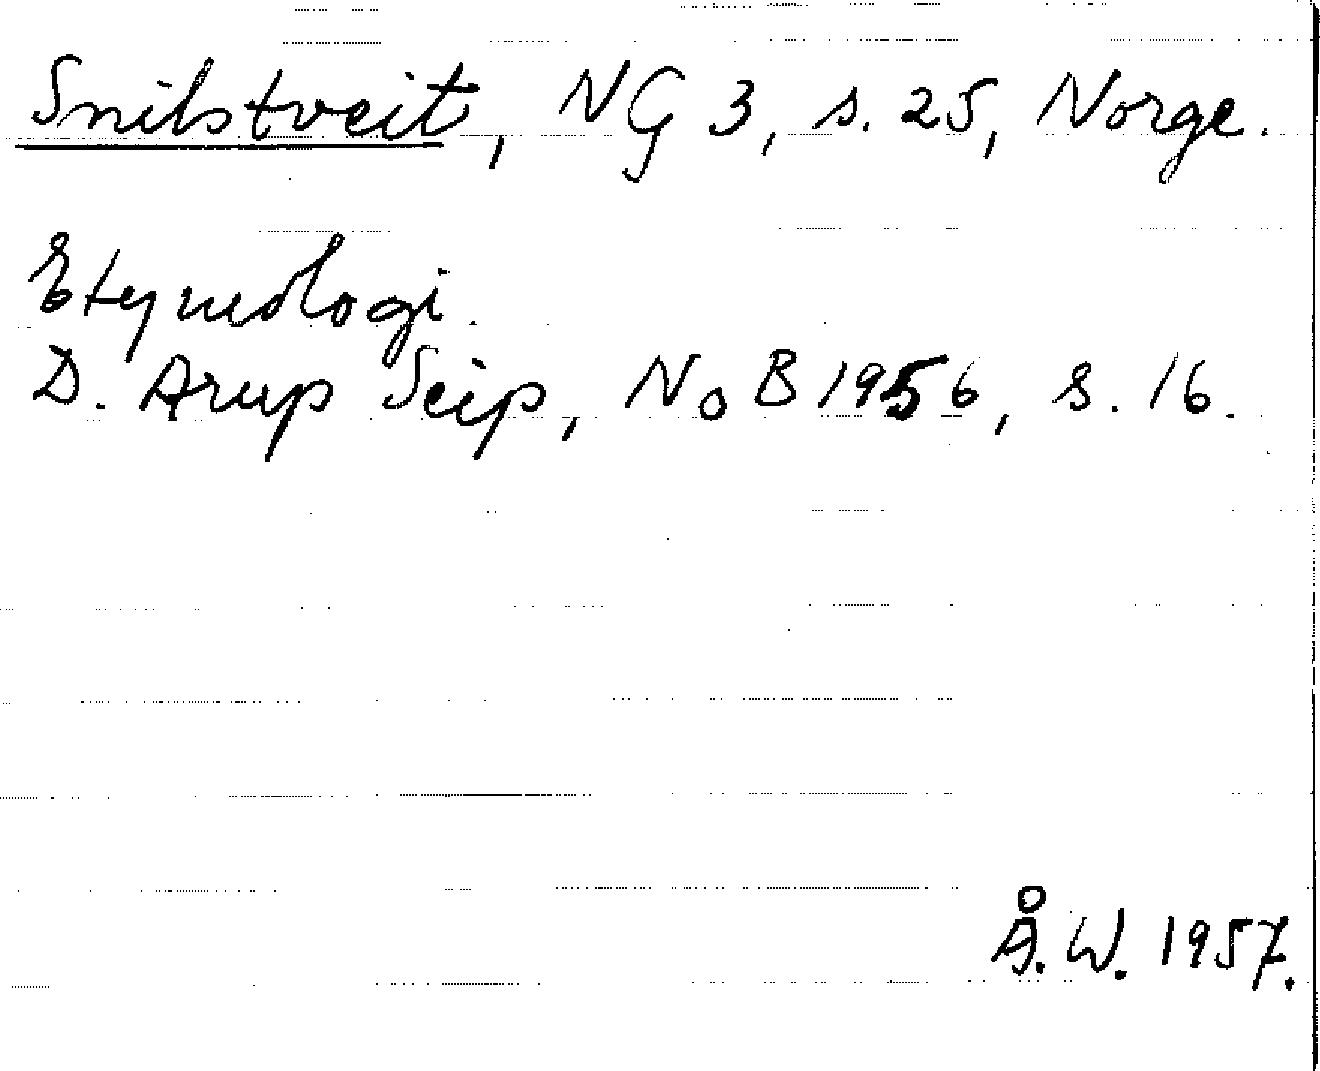 Snilstveit, NG 3, s. 25, Norge.
Etymologi.
D. Arup Seip, NoB 1956, s. 16.
Å. W. 1957.